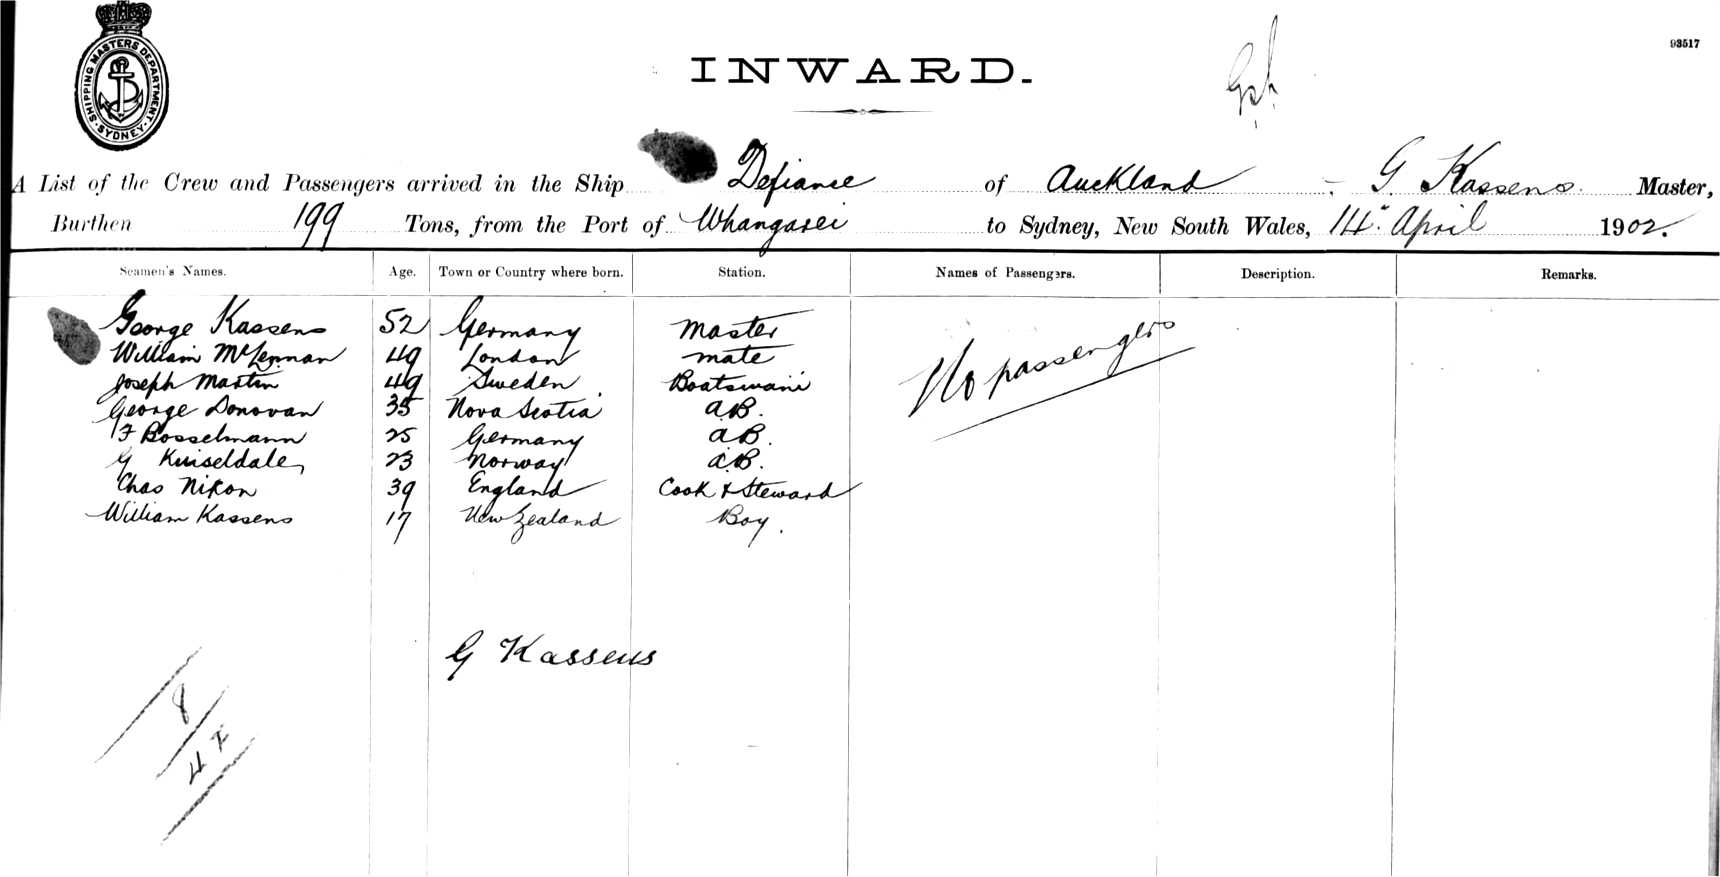 93517
SHIPPING MASTERS DEPARTMENT. SYDNEY.
INWARD.
A List of the Crew and Passengers arrived in the Ship Defiance of Auckland G. Kassens. Master,
Burthen 199 Tons, from the Port of Whangarei to Sydney, New South Wales, 14" April 1902.
Seamen's Names. Age. Town or Country where born. Station. Names of Passengers. Description. Remarks.
George Kassens 52 Germany Master No passengers
William McLennan 49 London mate
Joseph Martin 49 Sweden Boatswain
George Donovan 35 Nova Scotia A.B.
F Bosselmann 25 Germany A.B.
G 23 Norway A.B.
Chas Nixon 39 England Cook & Steward
William Kassens 17 New Zealand Boy.
G Kassens
8
4